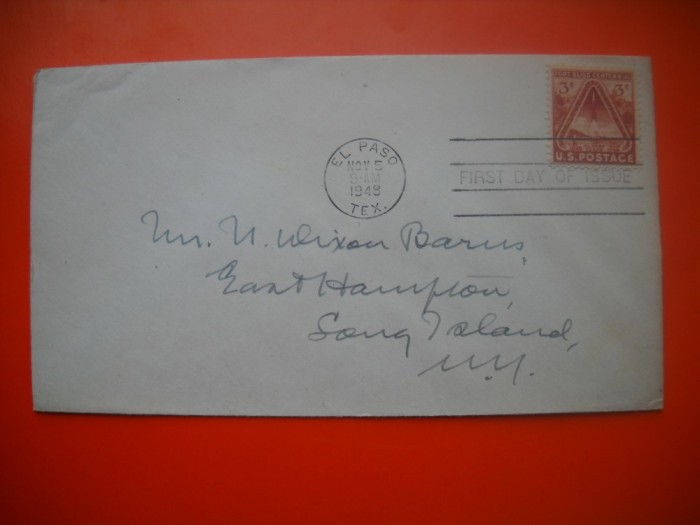 FORT BLISS CENTENNIAL
3¢ 3¢
U.S. POSTAGE
EL PASO
NOV 5
9-AM
1948
TEX.
FIRST DAY OF ISSUE
Mr. N. Dixon Barns,
East Hampton,
Long Island,
N.Y.